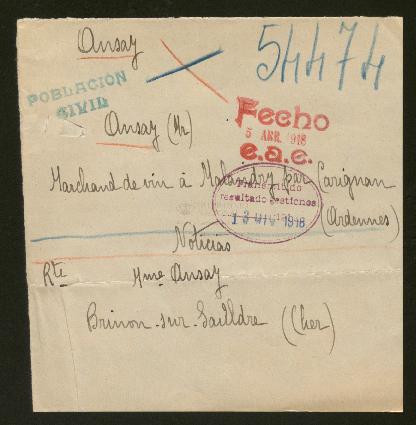 Ansay
54474
POBLACION
CIVIL
Ansay (Mr)
Fecho
5 ABR. 1918
e.a.c.
Marchand de vin à Malandry par Carignan
(Ardennes)
resultado gestiones
13 1918
Noticias
Rte Mme Ansay
Brinon-sur-Saildre (Cher)